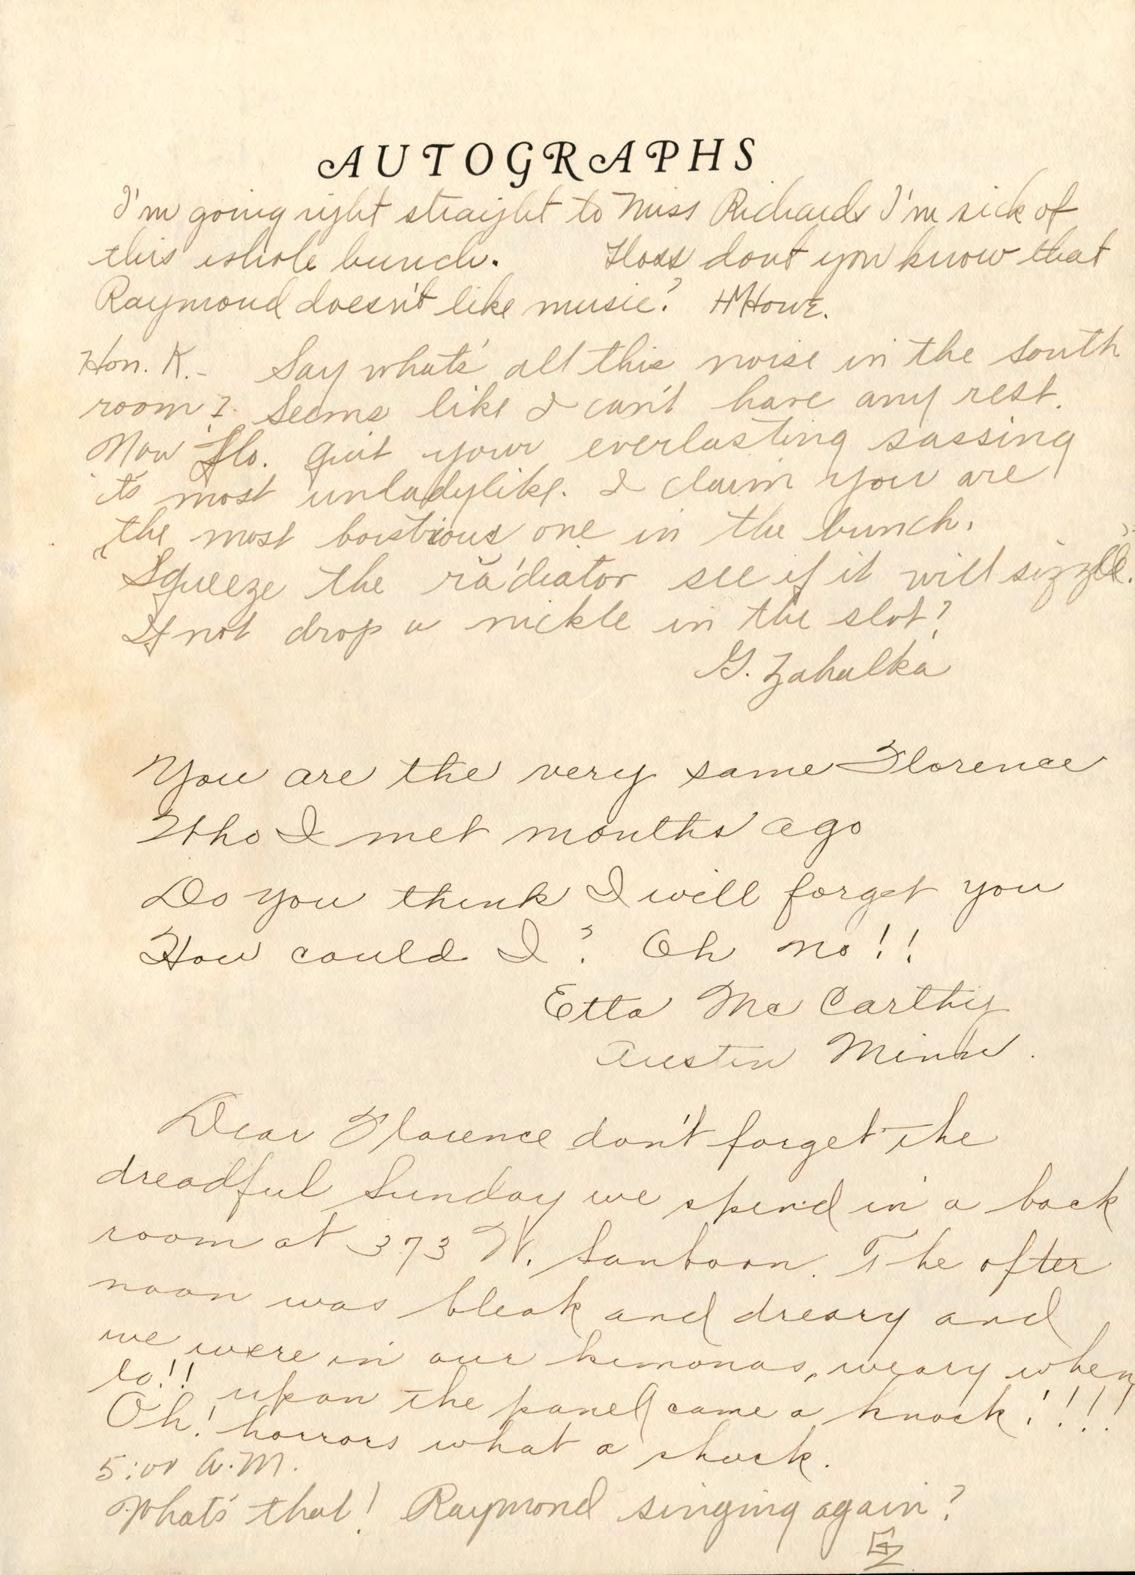 AUTOGRAPHS
I'm going right straight to Miss Richards I'm sick of
this whole bunch. Floss dont you know that
Raymond doesn't like music? HMHowE.
Hon. K.- Say whats' all this noise in the south
room? Seems like I can't have any rest.
Now Flo. quit your everlasting sassing
its most unladylike. I claim you are
the most boistrious one in the bunch.
"Squeeze the ra'diator see if it will sizzle."
If not drop a nickle in the slot?
G. Zahalka
You are the very same Florence
Who I met months ago
Do you think I will forget you
How could I? Oh no!!
Etta McCarthy
Austin Minn.
Dear Florence don't forget the
dreadful Sunday we spend in a back
room at 373 W. Sanborn. The after
noon was bleak and dreary and
we were in our kimonas, weary when
lo!! upon the panel came a knock!!!!
Oh! horrors what a shock.
5:00 A.M.
What's that! Raymond singing again?
GZ